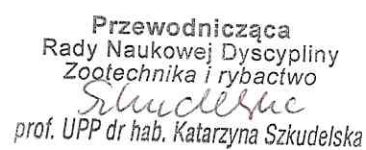 Przewodnicząca
Rady Naukowej Dyscypliny
Zootechnika i rybactwo
Szkudelska
prof. UPP dr hab. Katarzyna Szkudelska